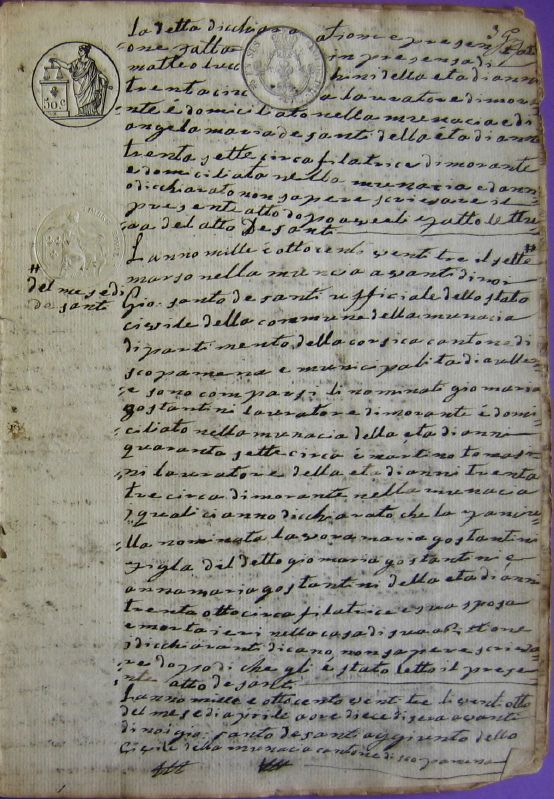 la detta dicchiaratione e presentati
one fatta in presensa di
matteo lucchini della eta di anni
trenta cinque lavuratore dimora
nte é domiciliato nella munacia e di
angela maria de santi della éta di anni
trenta sette circa filatrice dimorante
e domiciliata nella munacia ed anno
dicchiarato non sapere scrivere il
presente atto dopo averli fatto lettu
ra del atto De santi
L anno mille e ottocenti venti tre il sette #
# del mese di
de santi
marso nella munacia avanti di noi
Gio: santo de santi ufficiale dello stato
civile della commune della munacia
dipartimento della corsica cantone di
scopamena e municipalita di aullen
e sono comparsi li nominati gio maria
gostantini lavuratore dimorante é domi
ciliato nella munacia della eta di anni
quaranta sette circa é martino tomasi
ni lavuratore della eta di anni trenta
tre circa dimorante nella munacia
i quali anno dicchiarato che la
lla nominata maria gostantini
figla del detto gio maria gostantini é
anna maria gostantini della eta di anni
trenta otto circa filatrice e sua sposa
e morta ieri nella casa di sua
i dicchiaranti dicano non sapere scrive
re dopo di che gli é stato letto il prese
nte atto de santi
L anno mille e ottocento venti tre li vent otto
del mese di aprile a ore diece di sera avanti
di noi gio: santo de santi aggiunto dello
Civile della munacia cantone di scopamena
50 C